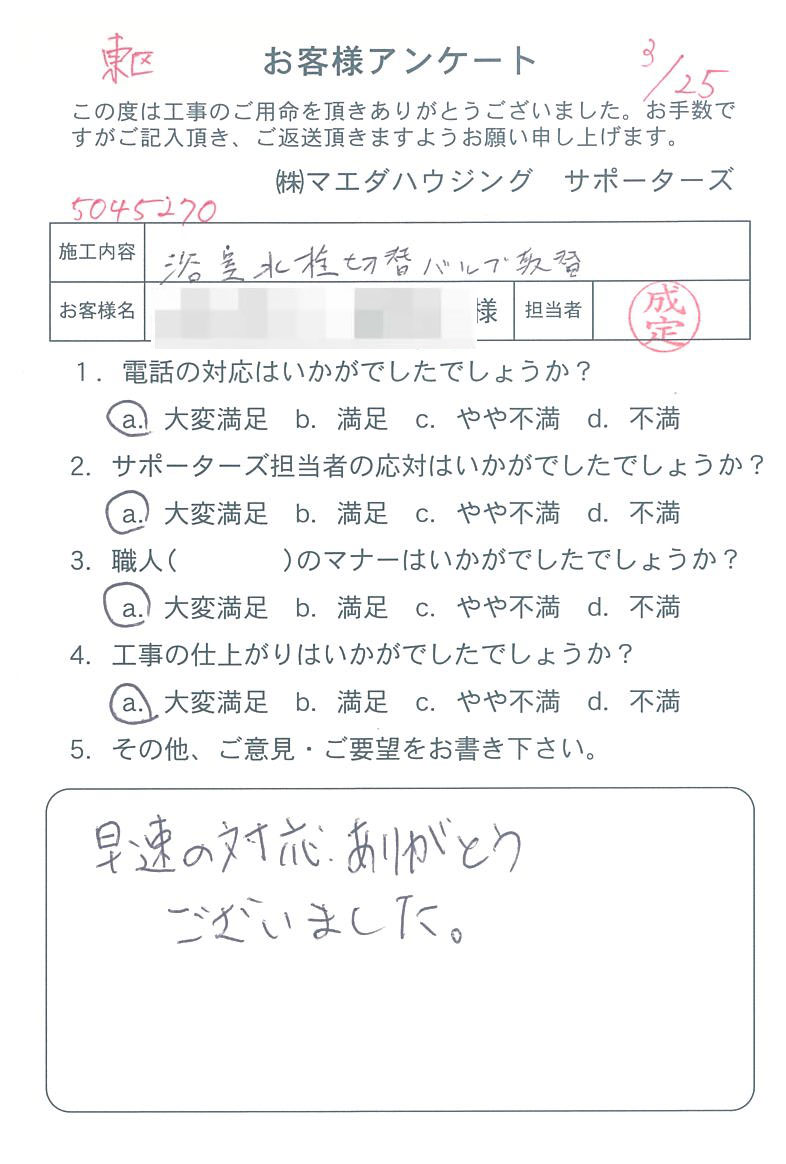 東区
お客様アンケート
3/25
この度は工事のご用命を頂きありがとうございました。お手数で
すがご記入頂き、ご返送頂きますようお願い申し上げます。
㈱マエダハウジング　サポーターズ
5045270
施工内容 浴室水栓切替バルブ取替
お客様名 様 担当者 成定
1. 電話の対応はいかがでしたでしょうか？
a. 大変満足 b. 満足 c. やや不満 d. 不満
2. サポーターズ担当者の応対はいかがでしたでしょうか？
a. 大変満足 b. 満足 c. やや不満 d. 不満
3. 職人(　　　　)のマナーはいかがでしたでしょうか？
a. 大変満足 b. 満足 c. やや不満 d. 不満
4. 工事の仕上がりはいかがでしたでしょうか？
a. 大変満足 b. 満足 c. やや不満 d. 不満
5. その他、ご意見・ご要望をお書き下さい。
早速の対応、ありがとう
ございました。